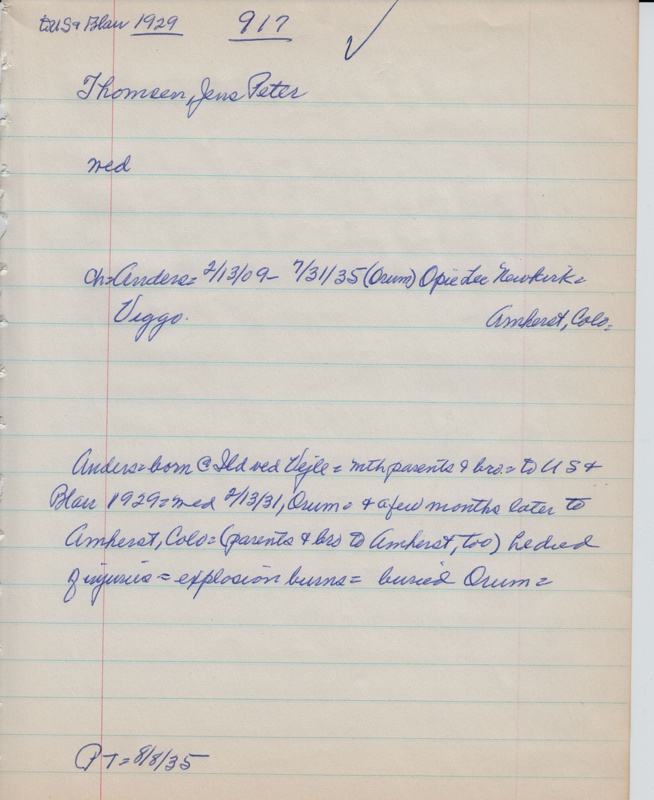 to US & Blair 1929 917 ✓
Thomsen, Jens Peter
med
ch= Anders= 2/13/09- 7/31/35 (Orum) Opie Lee Newkirk=
Viggo. Amherst, Colo=
Anders= born @ Ild ved Vejle= with parents & bro.= to US &
Blair 1929= med 2/13/31, Orum= & a few months later to
Amherst, Colo= (parents & bro to Amherst, too) he died
of injuries= explosion burns= buried Orum=
PT= 8/8/35